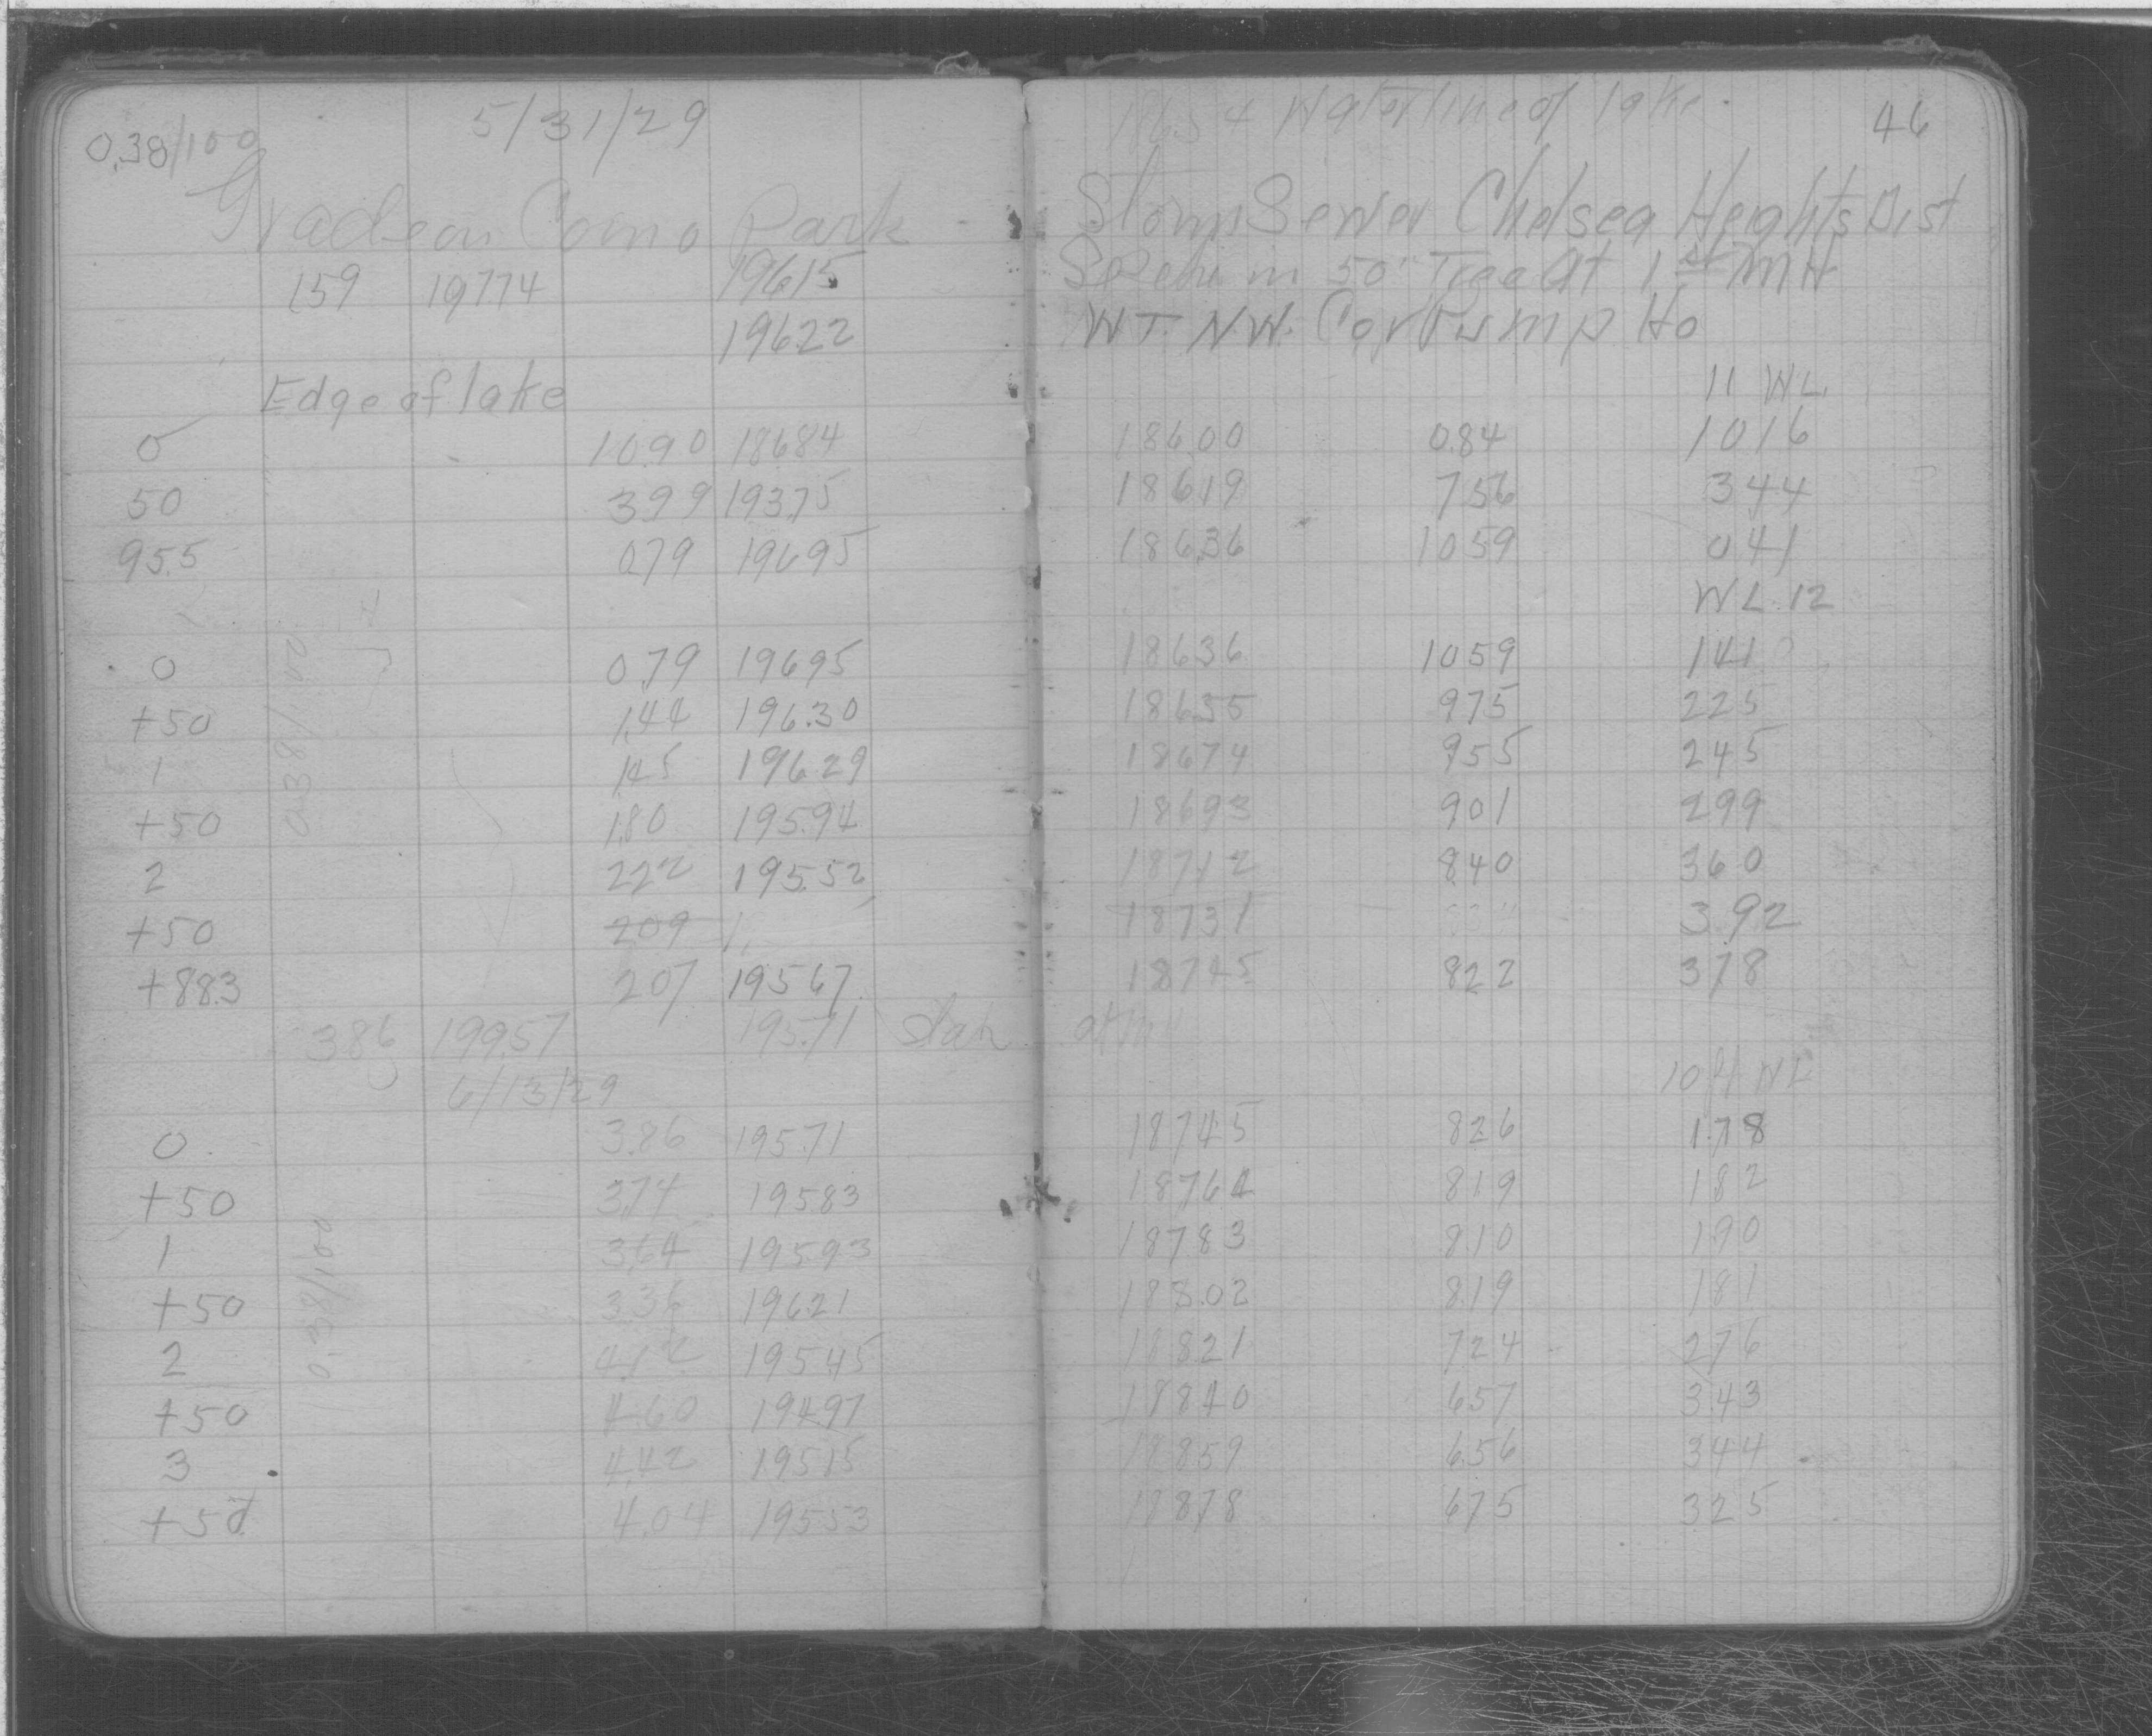 0.38/100 5/31/29 18654 Waterline of lake. 46
Grade on Como Park - Storm Sewer Chelsea Heights Dist
159 19774 19615 in 50" Tree At 1st MH
19622 WT. N.W. Cor Pump Ho
Edge of lake 11 WL.
0 10.90 18684 186.00 0.84 1016
50 399 193.75 18619 756 344
95.5 079 19695 186.36 1059 041
WL 12
0 0.79 19695 18636 1059 141
+50 1.44 196.30 18655 975 225
1 1.45 196.29 18674 955 245
+50 1.80 195.94 18693 901 299
2 222 195.52 18712 840 360
+50 209 18731 3.92
+88.3 207 19567 18745 822 378
386 199.57 195.71
6/13/29
0 3.86 195.71 18745 826 178
+50 3.74 19583 18764 819 182
1 3.64 19593 18783 810 190
+50 3.36 19621 188.02 819 181
2 4.12 19545 18821 724 276
+50 4.60 19497 18840 657 343
3 4.42 19515 18859 656 344
+50 4.04 19553 18878 675 325
0.38/100
0.38/100